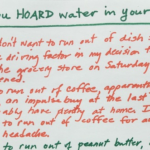 ou HOARD water in your
don't want to run out of dish s
driving factor in my decision t
the grocery store on Saturday
rned.
run out of coffee, apparent
an impulse buy at the last
ably have plenty at home. I
to run out of coffee for a
headache.
to run out of peanut butter,